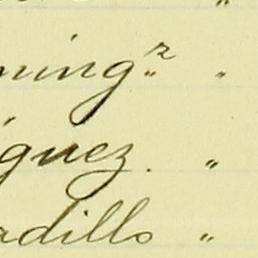 ning^r. "
guez. "
dillo "